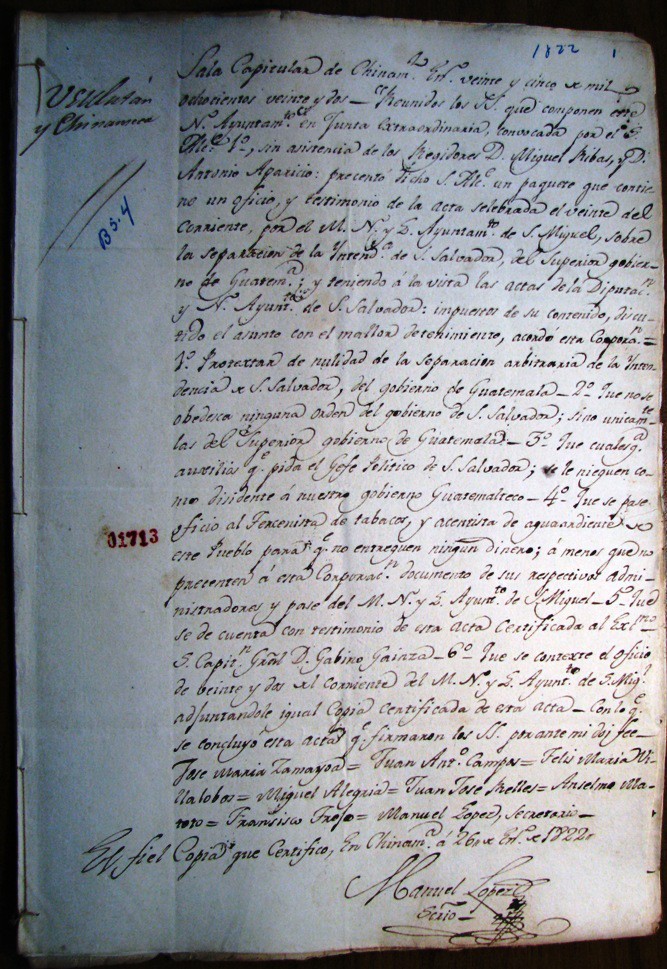 1822 1
Usulután
y Chinameca
B5.4
01713
Sala Capitular de Chinam.ª En.º veinte y cinco de mil
ochocientos veinte y dos — Reunidos los SS. que componen este
N.º Ayuntam.to en Junta extraordinaria, convocada por el S.
Alc.e 1.º, sin asistencia de los Regidores D. Miguel Ribas, y D.
Antonio Aparicio: precentó dicho S. Alc.e un paquete que contie-
ne un oficio, y testimonio de la acta selebrada el veinte del
corriente, por el M. N. y L. Ayuntam.to de S. Miguel, sobre
la separacion de la Intend.ª de S. Salvador, del Superior gobier-
no de Guatem.ª; y teniendo á la vista las actas de la Diputac.n
y N. Ayunt.to de S. Salvador: impuestos de su contenido, discu-
tido el asunto con el mallor detenimiento, acordó esta Corporac.n =
1.º Protextar de nulidad de la separacion arbitraria de la Inten-
dencia de S. Salvador, del gobierno de Guatemala — 2.º Que no se
obedesca ninguna orden del gobierno de S. Salvador; sino unicam.te
las del Superior gobierno de Guatemala — 3.º Que cualesq.ª
auxilios q.e pida el Gefe Politico de S. Salvador; se le nieguen co-
mo disidente á nuestro gobierno Guatemalteco — 4.º Que se pase
oficio al Tercenista de tabacos, y acentista de aguardiente de
este Pueblo para q.e no entreguen ningun dinero; á menos que no
precenten á esta Corporac.n documento de sus respectivos admi-
nistradores y pase del M. N. y L. Ayunt.to de S. Miguel — 5.º Que
se de cuenta con testimonio de esta acta Certificada al Ex.mo
S. Capit.n Gral D. Gabino Gainza — 6.º Que se contexte el oficio
de veinte y dos del corriente del M. N. y L. Ayunt.to de S. Mig.l
adjuntandole igual Copia certificada de esta acta — Con lo q.e
se concluyó esta acta q.e firmaron los SS. por ante mi doj fee —
Jose Maria Zamayoa = Juan Ant.º Campos = Felis Maria Vi-
llalobos = Miguel Alegria = Juan Jose Relles = Anselmo Ma-
toro = Fransisco Trejo = Manuel Lopez, Secretario —
Es fiel Copia que Certifico, En Chinam.ª á 26 de En.º de 1822
Manuel Lopez
Scrio —